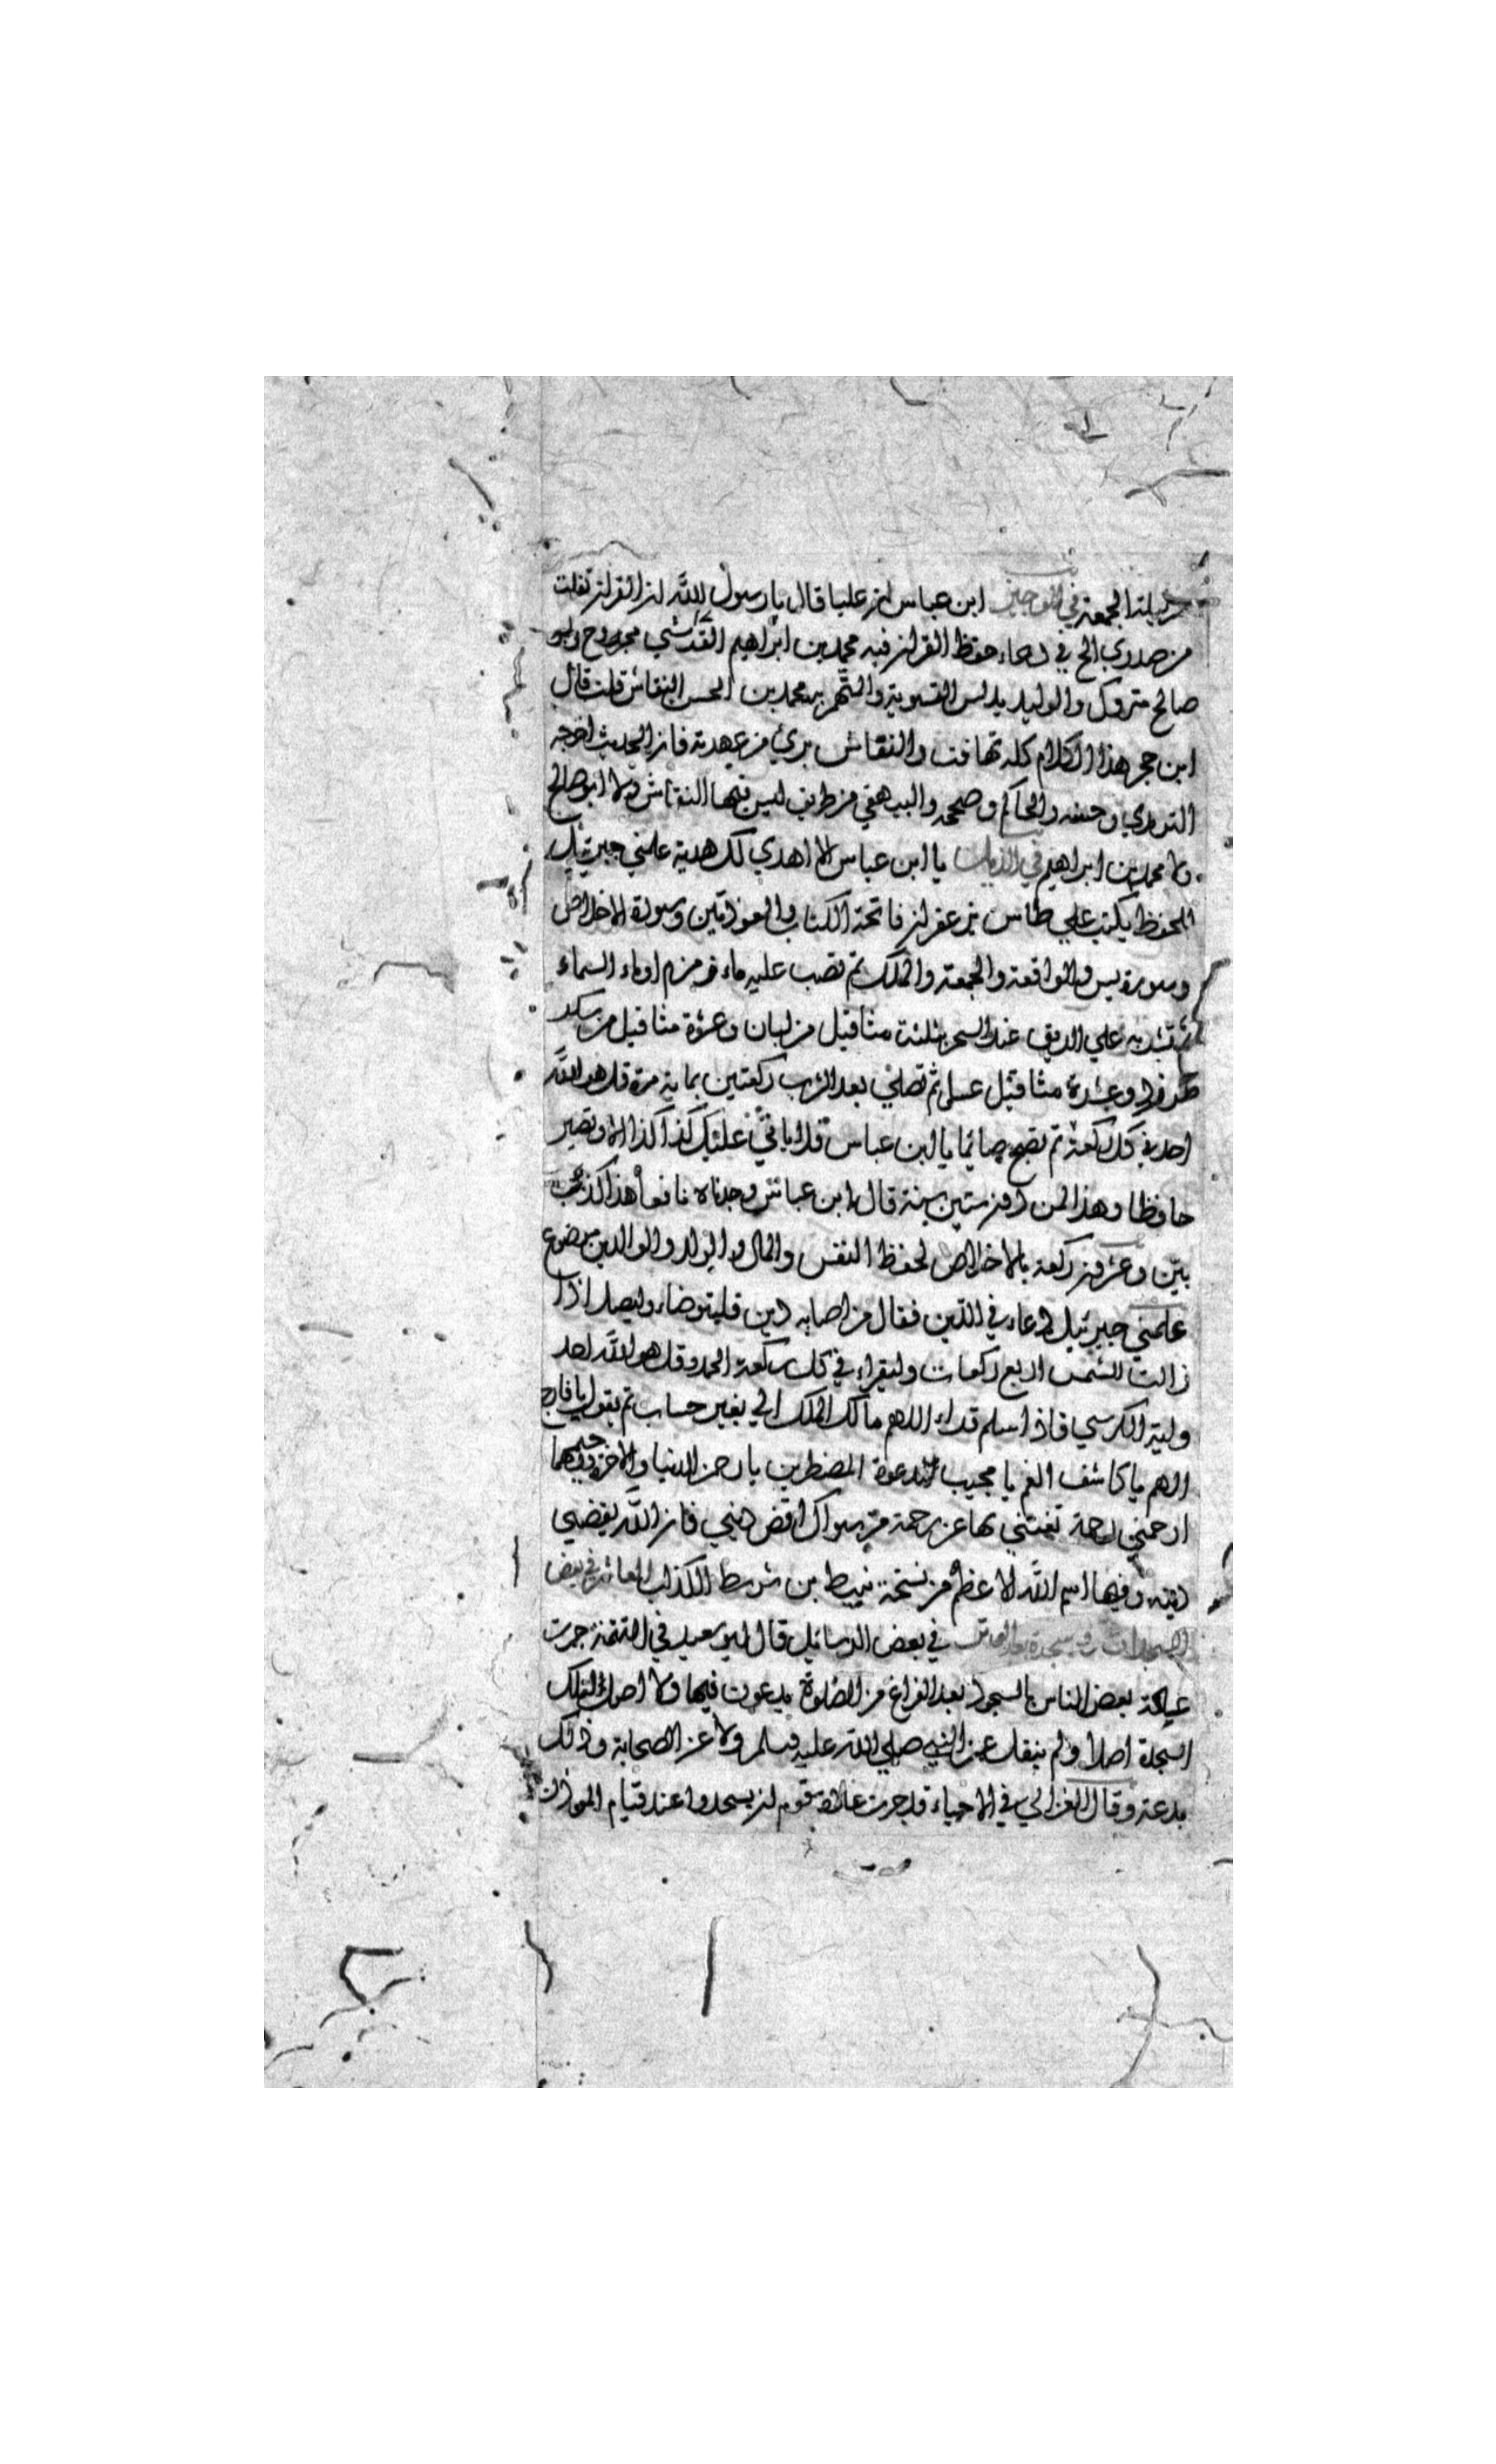 ليلة الجمعة في الوجيز ابن عباس ان عليا قال يا رسول الله ان القران تفلت
من صدري الخ في دعاء حفظ القران فيه محمد بن ابراهيم القرشي مجروح وابو
صالح متروك والوليد يدلس التسوية واتهم به محمد بن الحسن النقاش قلت قال
ابن حجر هذا الكلام كله تهافت والنقاش برئ من عهدته فان الحديث اخرجه
الترمذي وحسنه والحاكم وصححه والبيهقي من طريق ليس فيها النقاش ولا ابو صالح
ولا محمد بن ابراهيم في الذيل يا ابن عباس الا اهدي لك هدية علمني جبرئيل
للحفظ يكتب علي طاس بزعفران فاتحة الكتاب والمعوذتين وسورة الاخلاص
وسورة يس والواقعة والجمعة والملك ثم تصب عليه ماء زمزم او ماء السماء
ثم تشربه علي الريق عند السحر بثلثة مثاقيل من لبان وعشرة مثاقيل من سكر
طبرزد وعشرة مثاقيل عسل ثم تصلي بعد الشرب ركعتين بماية مرة قل هو الله
احد في كل ركعة ثم تصبح صائما يا ابن عباس فلا ياتي عليك كذا كذا الا وتصير
حافظا وهذا لمن دون ستين سنة قال ابن عباس وجدناه نافعا هذا كذب
بيّن وعشرون ركعة بالاخلاص لحفظ النفس والمال والولد والوالدين موضوع
علمني جبرئيل دعاء في الدّين فقال من اصابه دين فليتوضاء وليصل اذا
زالت الشمس اربع ركعات وليقراء في كل ركعة الحمد وقل هو الله احد
واية الكرسي فاذا سلم قراء اللهم مالك الملك الي بغير حساب ثم يقول يا فارج
الهم يا كاشف الغم يا مجيب دعوة المضطرين يا رحمن الدنيا والاخرة ورحيمهما
ارحمني رحمة تغنيني بها عن رحمة من سواك اقض ديني فان الله يقضي
دينه وفيها اسم الله الاعظم من نسخة نبيط بن شريط الكذاب
في بعض الرسائل قال ابو سعيد في المتممة جرت
عادة بعض الناس بالسجود بعد الفراغ من الصلوة يدعون فيها ولا اصل لتلك
السجدة اصلا ولم ينقل عن النبي صلي الله عليه وسلم ولا عن الصحابة وذلك
بدعة وقال الغزالي في الاحياء قد جرت عادة قوم ان يسجدوا عند قيام الموذن